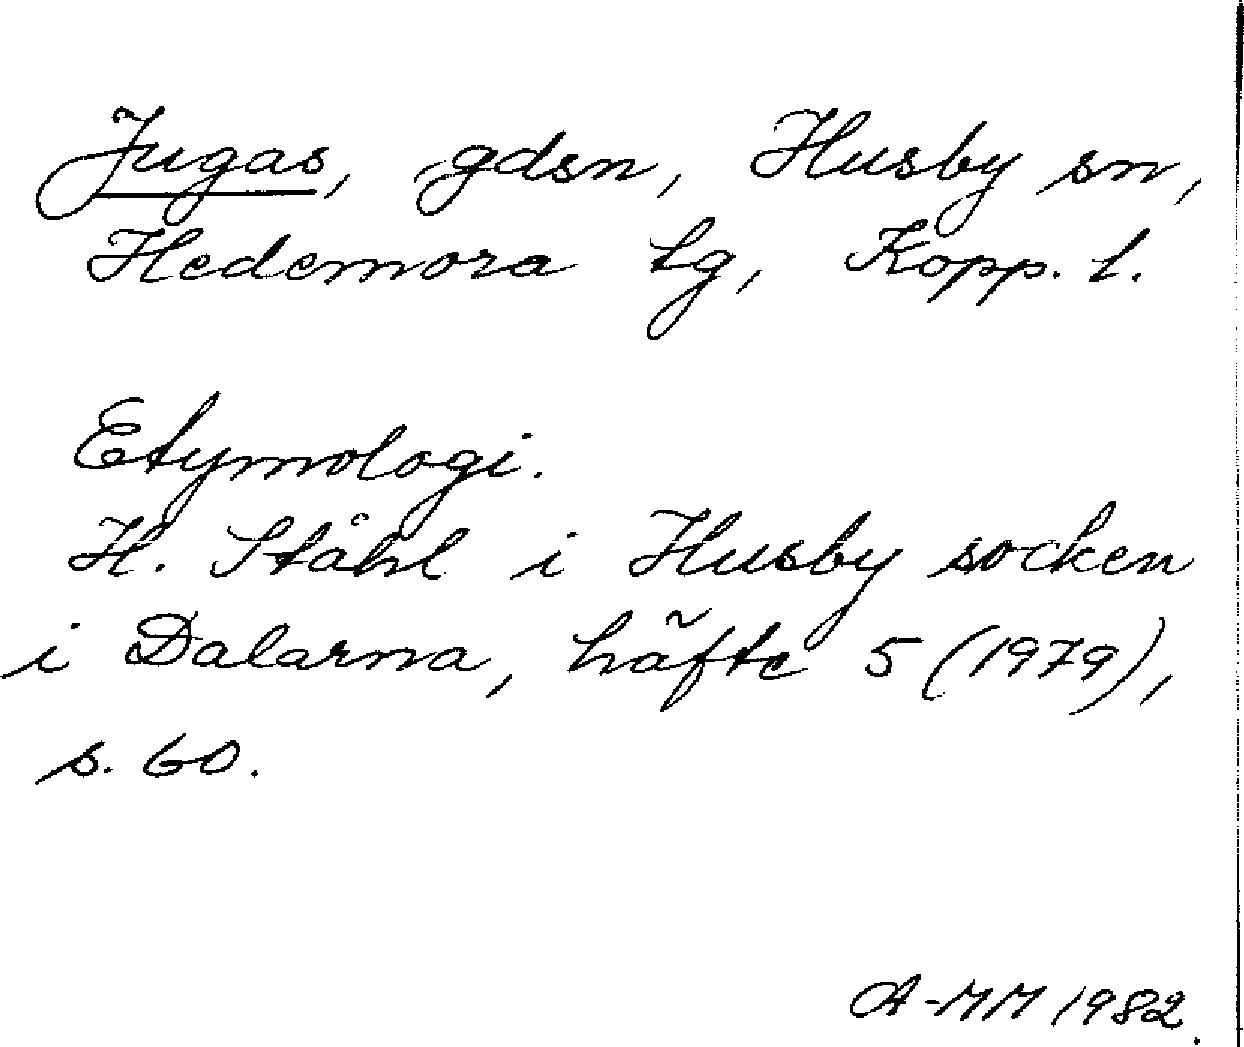 Jugas, gdsn, Husby sn,
Hedemora tg, Kopp. l.
Etymologi.
H. Ståhl i Husby socken
i Dalarna, häfte 5 (1979),
s. 60.
A-MM 1982.